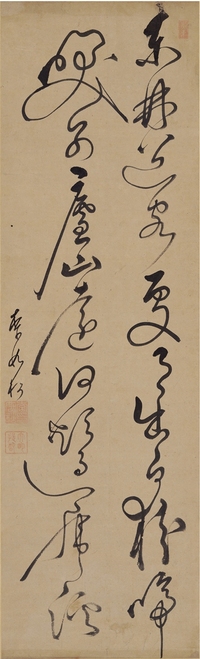 東林送客處月出白猿啼
笑別廬山遠何煩過虎溪
李如松